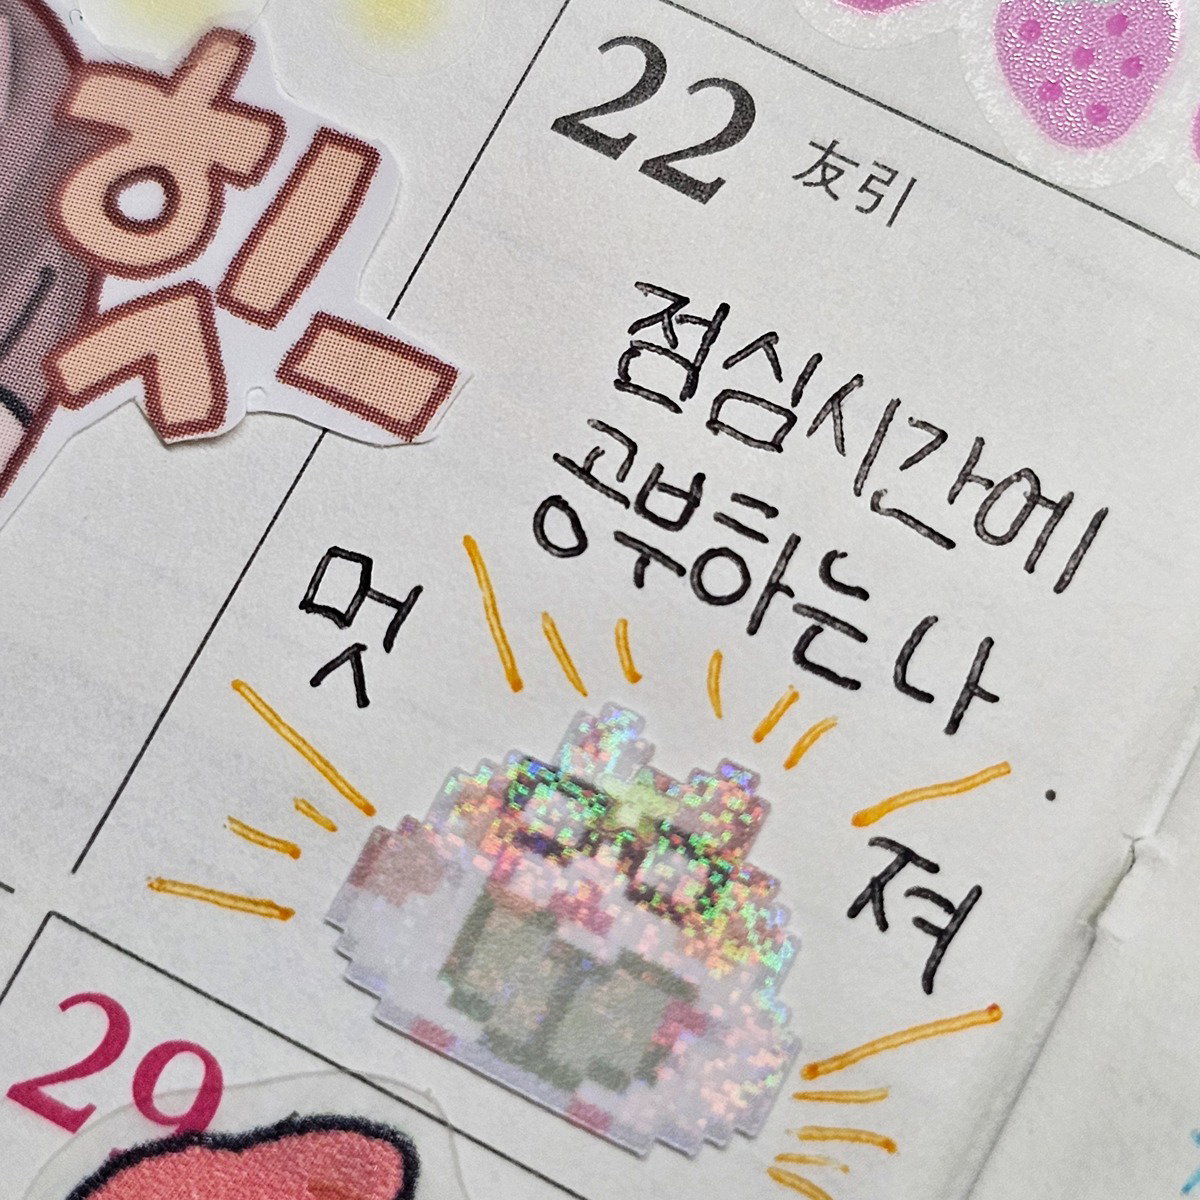 힛-
22 友引
점심시간에
공부하는 나
멋
져
29